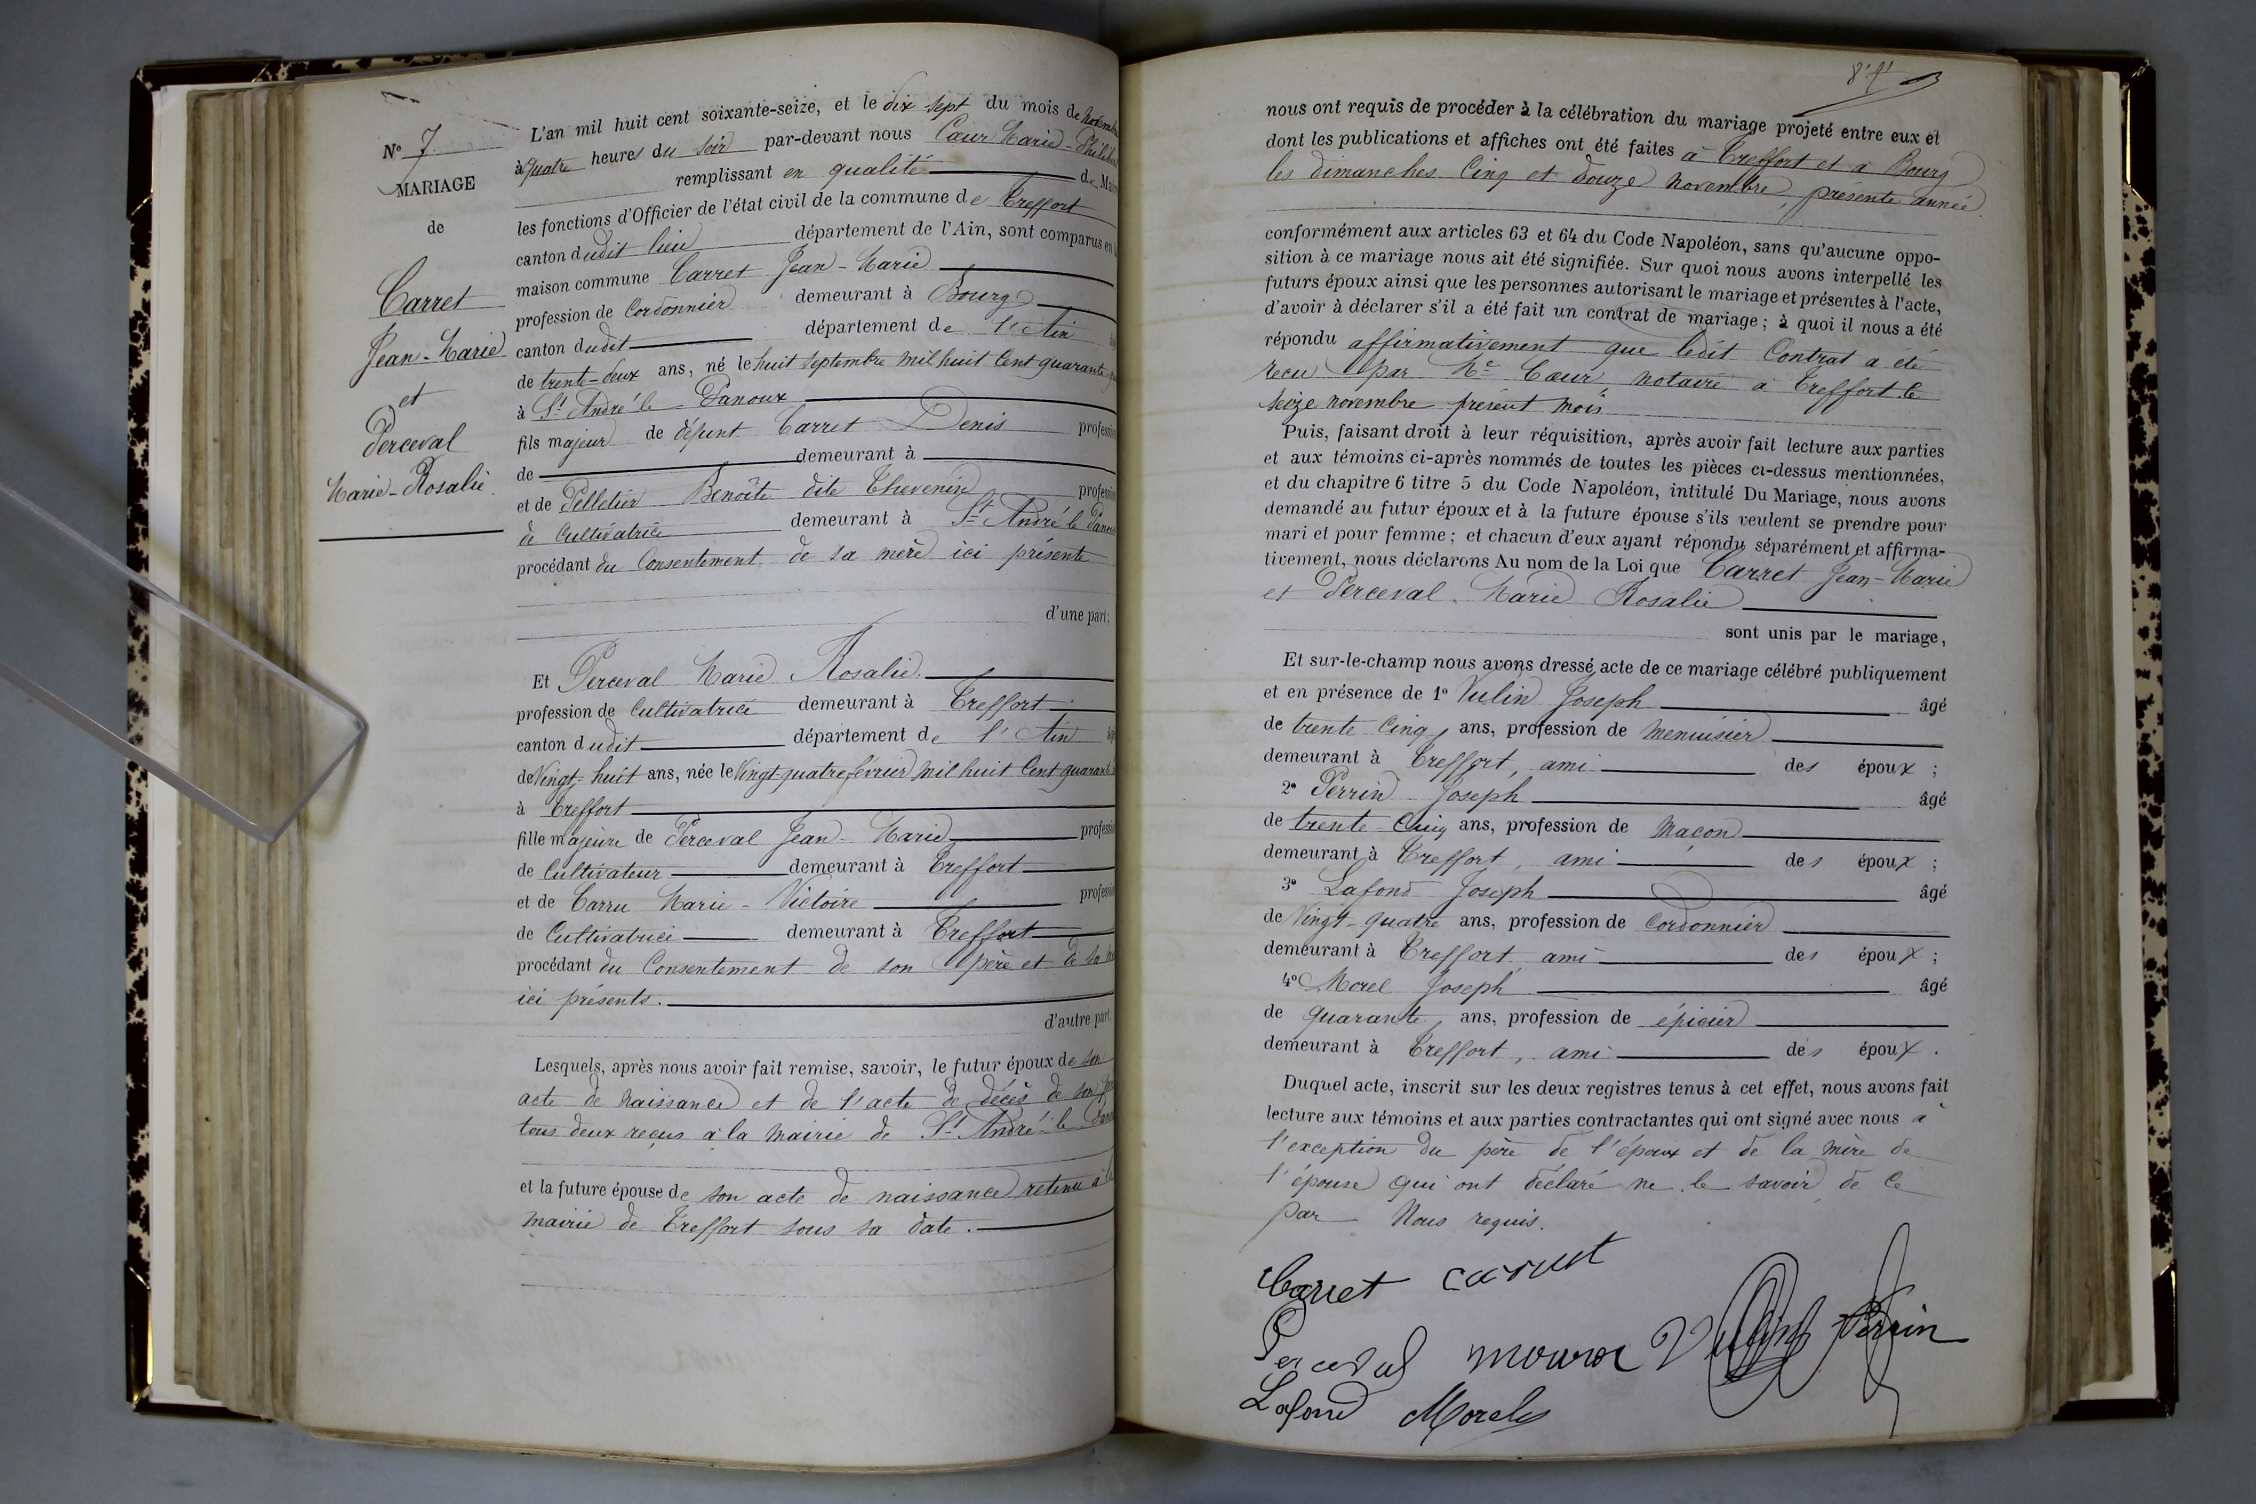 N° 7
MARIAGE
de
Carret
Jean-Marie
et
Perceval
Marie-Rosalie.
L'an mil huit cent soixante-seize, et le dix sept du mois de novembre
à quatre heures du soir par-devant nous Cœur Marie-Philibert
remplissant en qualité de Maire
les fonctions d'Officier de l'état civil de la commune de Treffort
canton dudit lieu département de l'Ain, sont comparus en la
maison commune Carret Jean-Marie
profession de Cordonnier demeurant à Bourg
canton dudit département de l'Ain
de trente-deux ans, né le huit septembre mil huit cent quarante
à St André le Panoux
fils majeur de défunt Carret Denis profession
de demeurant à
et de Pelletier Benoîte dite Thevenin profession
de Cultivatrice demeurant à St André le Panoux
procédant du Consentement de sa mère ici présente
d'une part;
Et Perceval Marie Rosalie.
profession de Cultivatrice demeurant à Treffort
canton dudit département de l'Ain
de Vingt-huit ans, née le Vingt-quatre février mil huit cent quarante
à Treffort
fille majeure de Perceval Jean-Marie profession
de Cultivateur demeurant à Treffort
et de Carru Marie-Victoire profession
de Cultivatrice demeurant à Treffort
procédant du Consentement de son père et de sa
ici présents.
d'autre part.
Lesquels, après nous avoir fait remise, savoir, le futur époux de son
acte de naissance et de l'acte de décès de son père
tous deux reçus à la mairie de St André-le Panoux
et la future épouse de son acte de naissance retenu à la
mairie de Treffort sous sa date.
84
nous ont requis de procéder à la célébration du mariage projeté entre eux et
dont les publications et affiches ont été faites à Treffort et à Bourg
les dimanches Cinq et douze novembre, présente année.
conformément aux articles 63 et 64 du Code Napoléon, sans qu'aucune oppo-
sition à ce mariage nous ait été signifiée. Sur quoi nous avons interpellé les
futurs époux ainsi que les personnes autorisant le mariage et présentes à l'acte,
d'avoir à déclarer s'il a été fait un contrat de mariage; à quoi il nous a été
répondu affirmativement que ledit Contrat a été
reçu par Me Cœur, notaire à Treffort le
seize novembre présent mois.
Puis, faisant droit à leur réquisition, après avoir fait lecture aux parties
et aux témoins ci-après nommés de toutes les pièces ci-dessus mentionnées,
et du chapitre 6 titre 5 du Code Napoléon, intitulé Du Mariage, nous avons
demandé au futur époux et à la future épouse s'ils veulent se prendre pour
mari et pour femme; et chacun d'eux ayant répondu séparément et affirma-
tivement, nous déclarons Au nom de la Loi que Carret Jean-Marie
et Perceval Marie Rosalie
sont unis par le mariage,
Et sur-le-champ nous avons dressé acte de ce mariage célébré publiquement
et en présence de 1° Vulin Joseph âgé
de trente cinq ans, profession de menuisier
demeurant à Treffort, ami des époux;
2° Perrin Joseph âgé
de trente-Cinq ans, profession de Maçon
demeurant à Treffort, ami des époux;
3° Lafond Joseph âgé
de Vingt-quatre ans, profession de Cordonnier
demeurant à Treffort, ami des époux;
4° Morel Joseph âgé
de quarante ans, profession de épicier
demeurant à Treffort, ami des époux.
Duquel acte, inscrit sur les deux registres tenus à cet effet, nous avons fait
lecture aux témoins et aux parties contractantes qui ont signé avec nous à
l'exception du père de l'époux et de la mère de
l'épouse qui ont déclaré ne le savoir de ce
par Nous requis.
Carret carret
Perceval Vulin Perrin
Lafond Morel